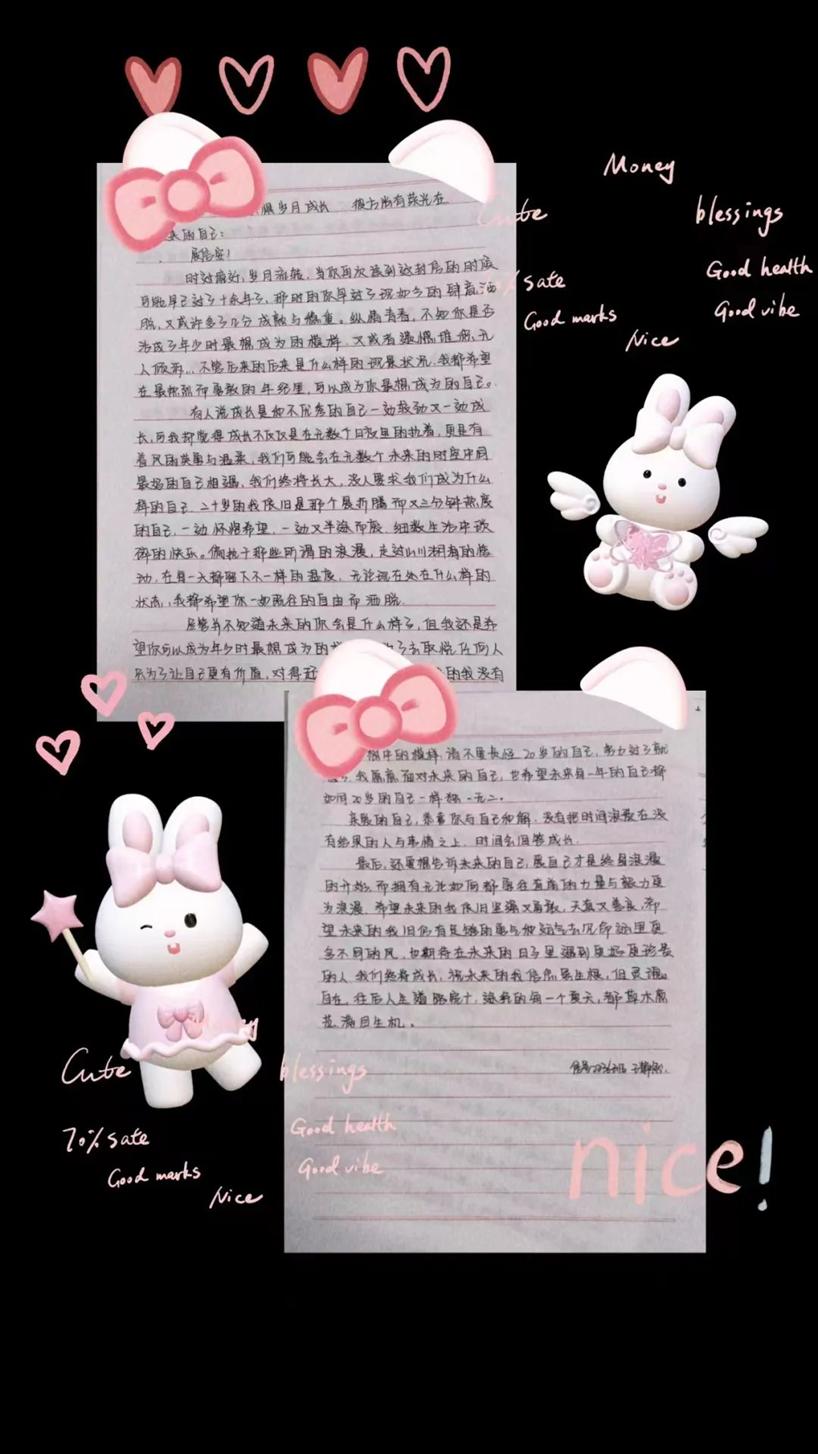 Money
Cute
blessings
Good health
sate
Good marks
Good vibe
Nice
岁月成长 彼方尚有荣光在
来的自己:
展信安!
时过境迁,岁月流转,当你再次读到这封信的时
早已过了十余年了,那时的你早过了现如今的肆意洒
脱,又或许多了几分成熟与稳重。纵观青春,不知你是否
活成了年少时最想成为的模样,又或者遗憾
不管后来的后来是什么样的现景状况,我都希望
在最热烈而勇敢的年纪里,可以成为你最想成为的自己。
有人说成长是和不优秀的自己一边较劲又一边成
长,可我却觉得成长不仅仅是在无数个日夜里的执着,更是有
着风的英勇与温柔,我们可能会在无数个未来的时空中同
最好的自己相遇,我们终将长大,没人要求我们成为什么
样的自己,二十岁的我依旧是那个爱折腾而又三分钟热度
的自己,一边怀揣希望,一边又半途而废,细数生活中琐
碎的快乐。偏执于那些所谓的浪漫,走过山川湖海的悸
动,在每一天都留下不一样的温度,无论现在处在什么样的
状态,我都希望你一如既往的自由而洒脱。
尽管并不知道未来的你会是什么样子,但我还是希
望你可以成为年少时最想成为的 了去取悦任何人
只为了让自己更有价值,对得起 的我没有
想中的模样,请不要辜负20岁的自己,努力过了就
我愿意面对未来的自己,也希望未来每一年的自己都
如同20岁的自己一样独一无二。
亲爱的自己,恭喜你与自己和解,没有把时间浪费在没
有结果的人与事情之上,时间会回答成长。
最后,还要想告诉未来的自己,爱自己才是终身浪漫
的开始,而拥有无论如何都勇往直前的力量与毅力更
为浪漫,希望未来的我依旧坚强又勇敢,天真又善良,希
望未来的我旧仍有足够的勇气和运气去沉命运里更
多不同的风,也期待在未来的日子里遇到更好更珍贵
的人,我们终将成长,祝未来的我信念野生,但灵魂
自在,往后人生道路宽广,途我的每一个夏天,都草木蔓
茂,满目生机。
Cute
blessings
70% sate
Good health
Good marks
Good vibe
Nice
nice!